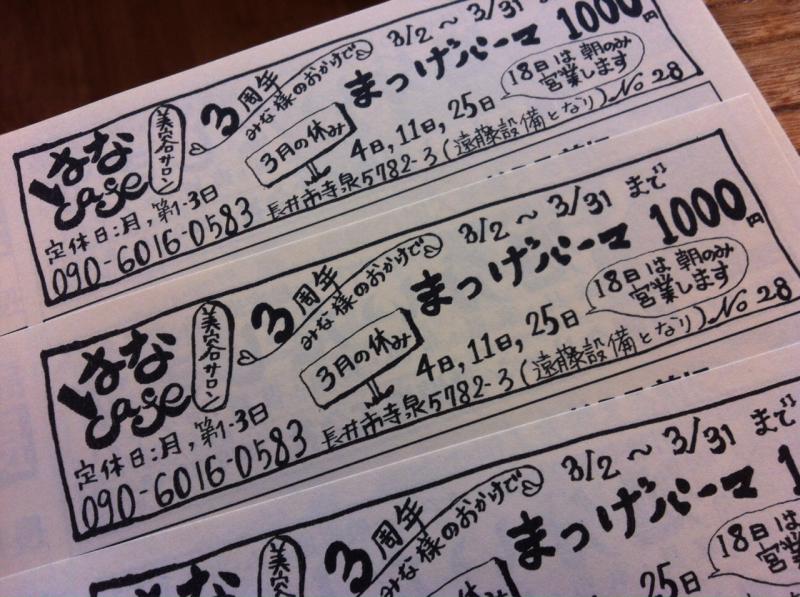 はな
cafe
美容サロン
3周年
みな様のおかげで
3/2～3/31
まつげパーマ 1000円
3月の休み
4日,11日,25日
18日は朝のみ
営業します
定休日:月,第1-3日
090-6016-0583
長井市寺泉5782-3(遠藤設備となり)No 28
はな
cafe
美容サロン
3周年
みな様のおかげで
3/2～3/31まで
まつげパーマ 1000円
3月の休み
4日,11日,25日
18日は朝のみ
営業します
定休日:月,第1-3日
090-6016-0583
長井市寺泉5782-3(遠藤設備となり)No 28
はな
美容
3周年
みな様のおかげで
3/2～3/31まで
まつげパーマ 1
3月の休み
25日
18日は
営業